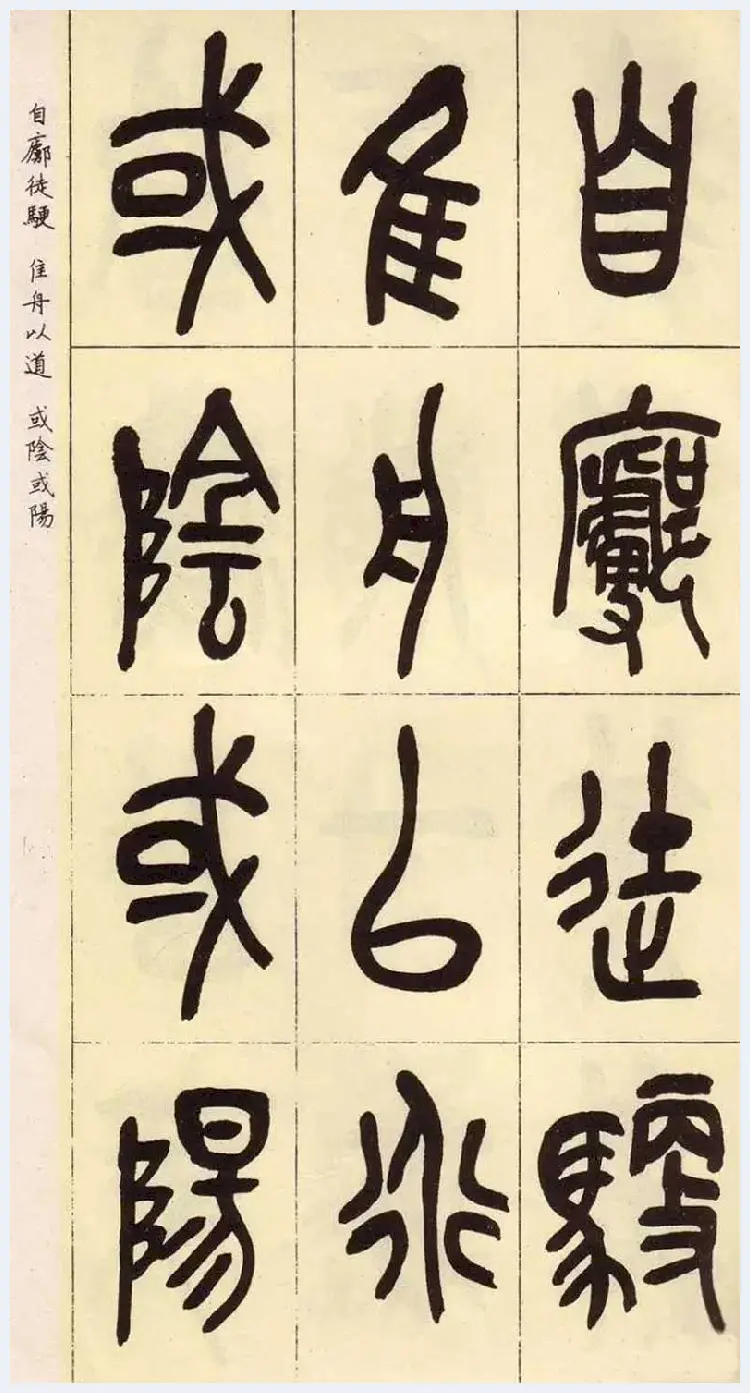 自廊徒驛
隹舟以道
或陰或陽
自廊徒驛 隹舟以道 或陰或陽